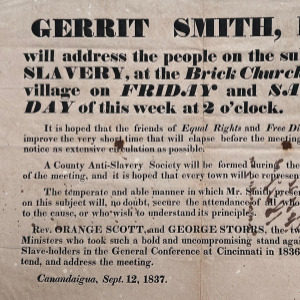 GERRIT SMITH,
will address the people on the su
SLAVERY, at the Brick Church
village on FRIDAY and SA
DAY of this week at 2 o'clock.
It is hoped that the friends of Equal Rights and Free Di
improve the very short time that will elapse before the meeting
notice as extensive circulation as possible.
A County Anti-Slavery Society will be formed during the
of the meeting, and it is hoped that every town will be represent
The temperate and able manner in which Mr. Smith
on this subject will, no doubt, secure the attendance of all who
to the cause, or who wish to understand its principle
Rev. ORANGE SCOTT, and GEORGE STORRS, the tw
Ministers who took such a bold and uncompromising stand again
Slave-holders in the General Conference at Cincinnati in 1836
tend, and address the meeting.
Canandaigua, Sept. 12, 1837.